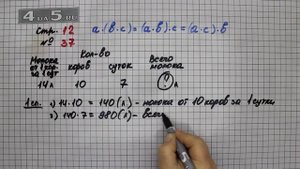 4 da 5.ru
Стр. 12
№ 37
a·(b·c)=(a·b)·c=(a·c)·b
Кол-во
Молока от 1 кор. за 1 сут.
коров
суток
Всего молока
14л
10
7
? л
1 сп.
1) 14·10 = 140 (л) - молока от 10 коров за 1 сутки
2) 140·7 = 980 (л) - всего